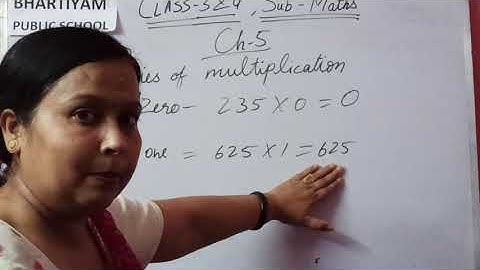 BHARTIYAM
PUBLIC SCHOOL
CLASS-3&4, Sub-Maths
Ch-5
of multiplication
Zero- 235 X 0 = 0
one = 625 X 1 = 625